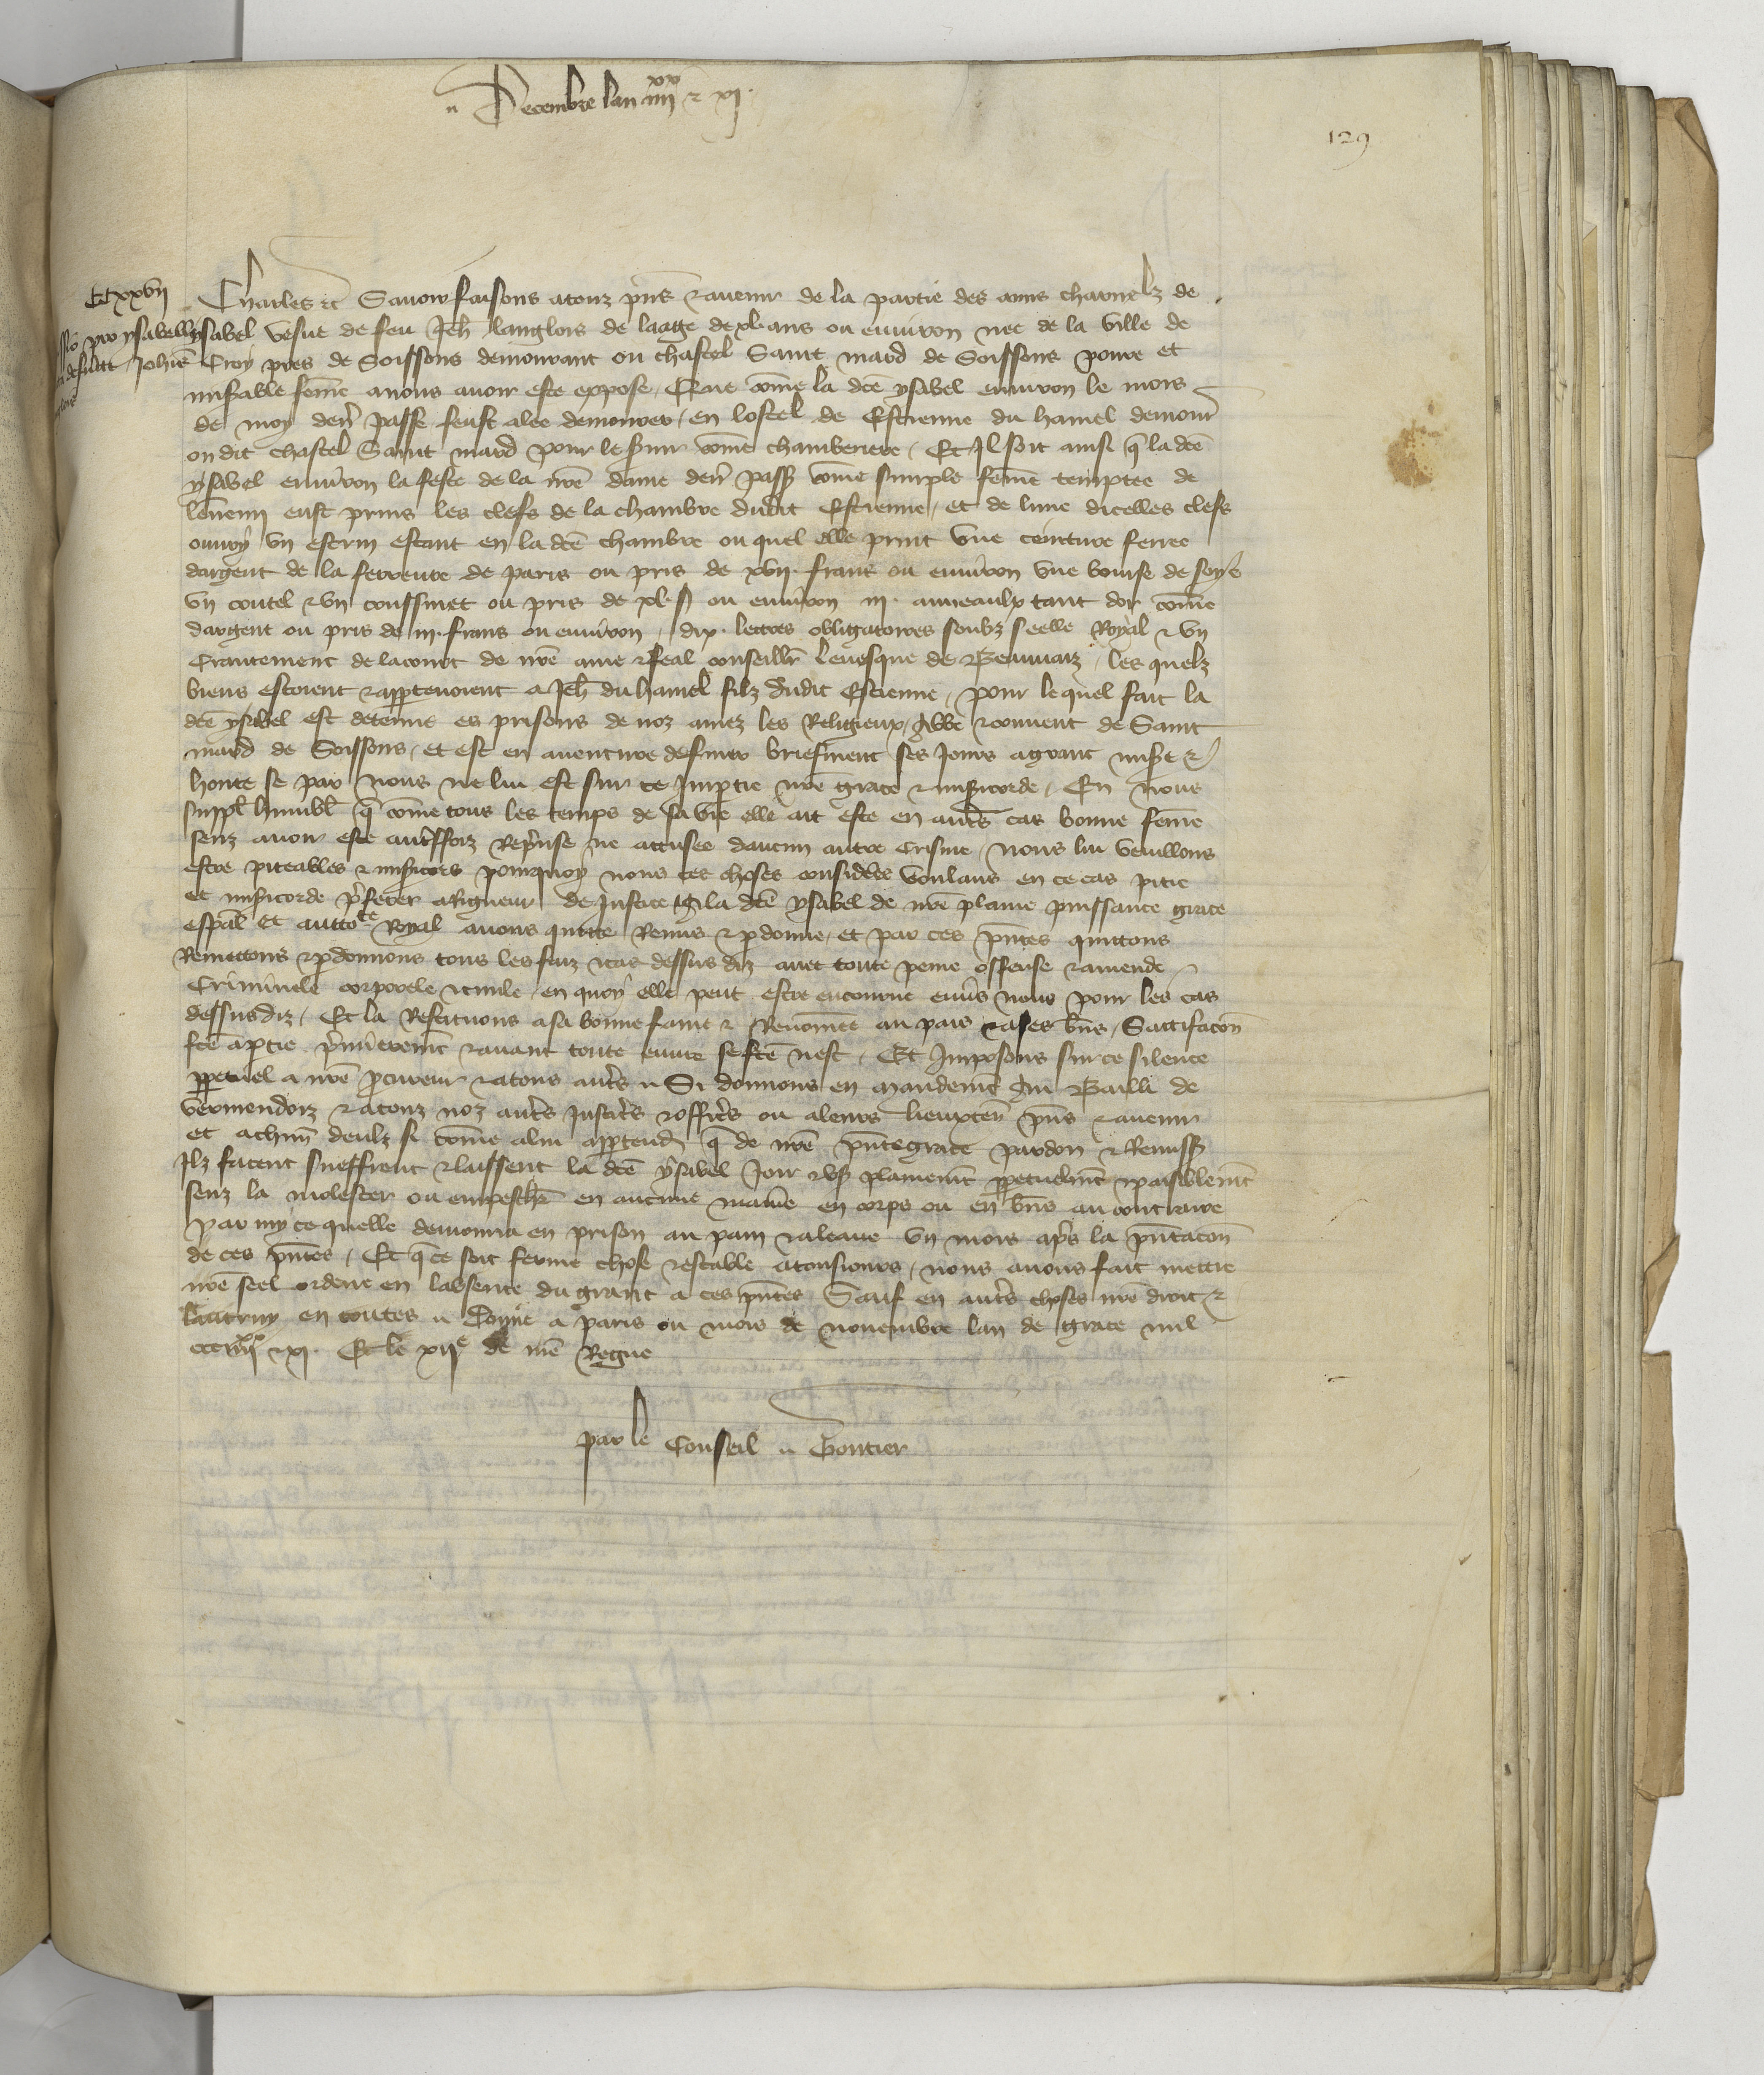 n Decembre lan iiii xx & xi.
129
CCxxvii
pro ysabelli
Johis
Charles &c Savoir faisons a touz pns & avenir de la partie des amis charnelz de
ysabel vefue de feu Jeh langlois de laage de xl. ans ou environ nee de la ville de
Croy pres de Soissons demourant ou chastel Saint mard de Soissons povre et
misable feme a nous avoir este expose Que come la dce ysabel environ le mois
de may derr passe feust alee demourer en lostel de Estienne du hamel demour
ou dit chastel Saint mard pour le servir come chamberiere Et Il soit ainsi q la dce
ysabel environ la feste de la nre dame derr pass come simple feme temptee de
lennemi eust prins les clefs de la chambre dudit Estienne et de lune dicelles clefs
ouvry un escrin estant en la dce chambre ou quel elle print une ceinture ferree
dargent de la ferreure de paris ou pris de xvii. frans ou environ une bourse de soye
un coutel & un coussinet ou pris de xl. s ou environ iii. anneaulx tant dor come
dargent ou pris de iii. frans ou environ dix lettres obligatoires soubz seelle Royal & un
Crantement de la court de nre ame & feal conseillr levesque de Beauvaiz les quelz
biens estoient & appartenoient a Jeh du hamel filz dudit Estienne pour lequel fait la
dce ysabel est detenue es prisons de noz amez les Religieux Abbe & couvent de Saint
mard de Soissons et est en aventure de finer briefment ses Jours a grant mise &
honte se par nous ne lui est sur ce Imptie nre grace & misericorde En nous
suppl humbl q come tous les temps de sa vie elle ait este en autres cas bonne feme
senz avoir este autreffoiz Reprise ne accusee daucun autre Crisme nous lui vueillons
estre piteables & misicors pourquoy nous ces choses considdees voulans en ce cas pitie
et misicorde preferer a Rigueur de Justice A la dce ysabel de nre plaine puissance grace
espal et auctote Royal avons quitte Remis & pdonne et par ces pntes quittons
Remettons & pdonnons tous les faiz & cas dessus diz avec toute peine offense & amende
Criminele corporele & civile en quoy elle peut estre encourue envers nous pour les cas
dessusdiz Et la Restituons a sa bonne fame & Renomee au pais & a ses bns Satisfacon
fce a ptie premierement & avant toute euvre se fce nest Et Imposons sur ce silence
ppetuel a nre procureur & a tous autres n Si donnons en mandement Au Bailli de
Vermendoiz & a touz noz autres justiciers & officiers ou a leurs lieuxten pns & avenir
et a chun deulz si come a lui appartendra q de nre pnte grace pardon & Remiss
Ilz facent sueffrent & laissent la dce ysabel Joir & us plainement ppetuelment & paisiblement
senz la molester ou empescher en aucune maniere en corps ou en bns au contraire
par my ce quelle demourra en prison au pain & a leaue un mois apres la pntacon
de ces pntes Et q ce soit ferme chose & estable a tousiours nous avons fait mettre
nre seel ordene en labsence du grant a ces pntes Sauf en autres choses nre droit &
lautruy en toutes n Donne a paris ou mois de novembre lan de grace mil
ccc iiii xx & xi. Et le xiie de nre Regne
par le Conseil n Gontier